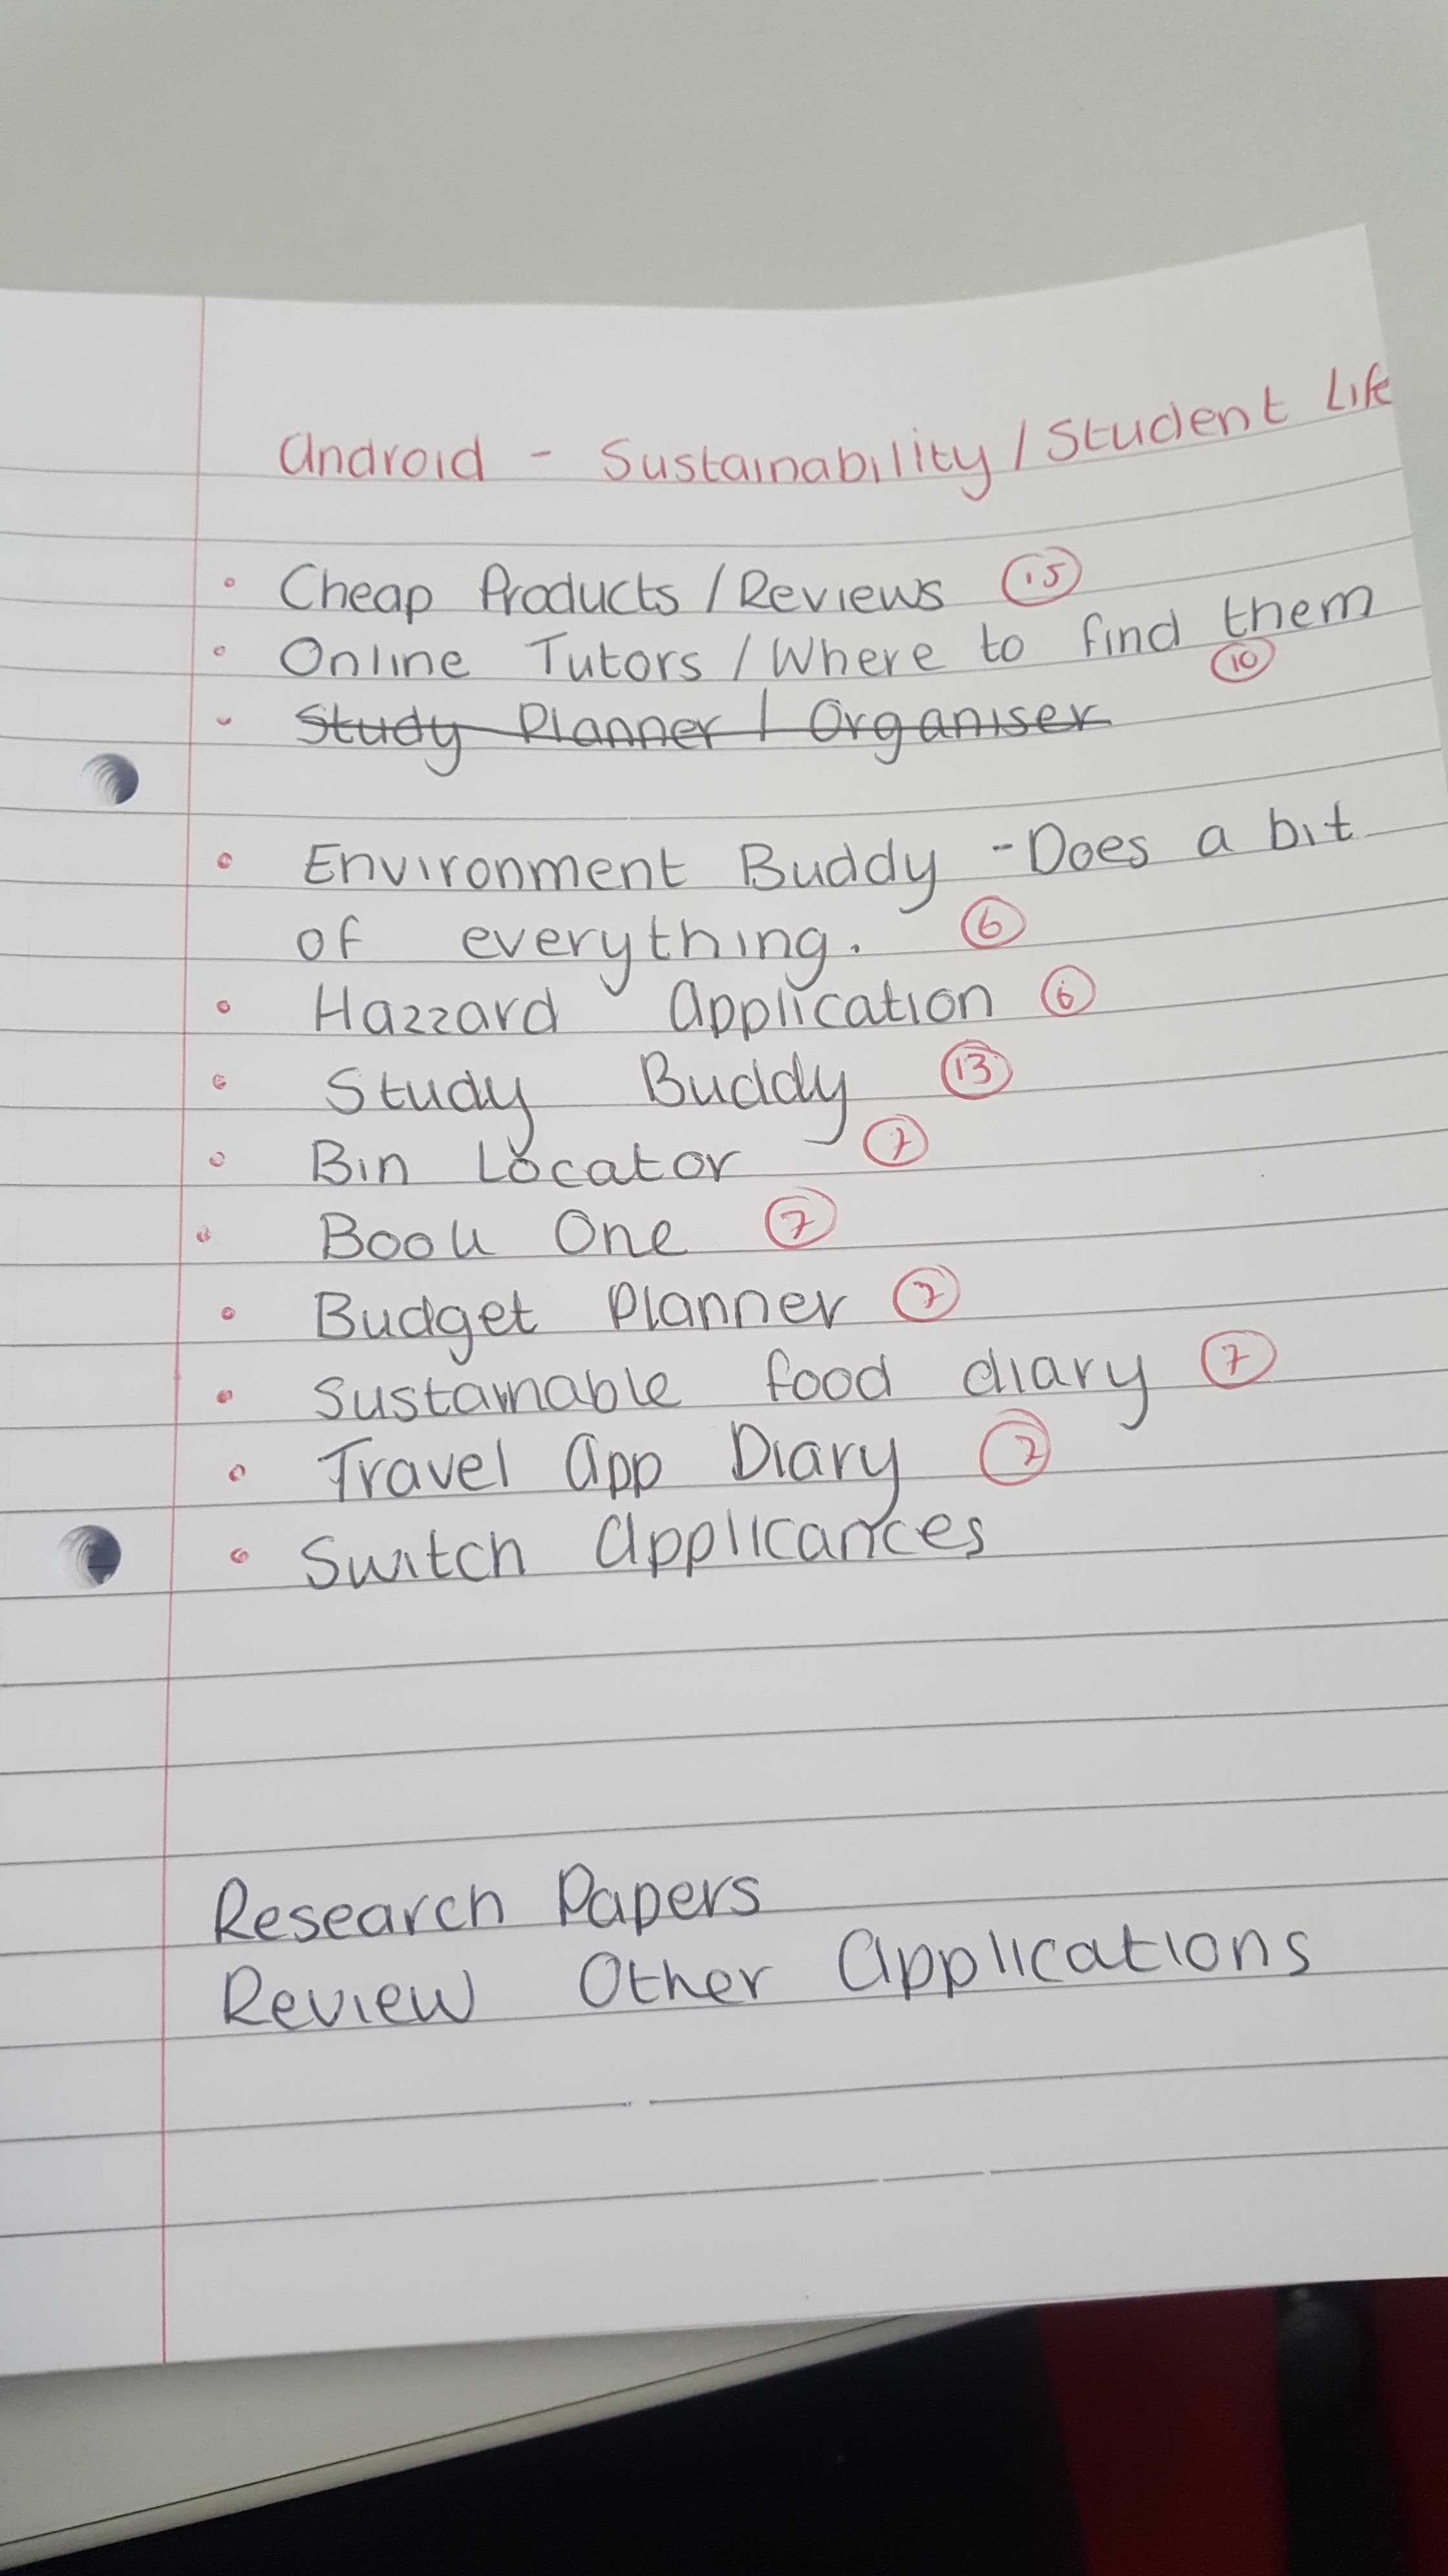 Android - Sustainability / Student Life
• Cheap Products / Reviews 15
• Online Tutors / Where to find them 10
• Study Planner / Organiser
• Environment Buddy - Does a bit
of everything. 6
• Hazzard Application 6
• Study Buddy 13
• Bin Locator 7
• Book One 7
• Budget Planner 7
• Sustainable food diary 7
• Travel App Diary 7
• Switch Applicances
Research Papers
Review Other Applications